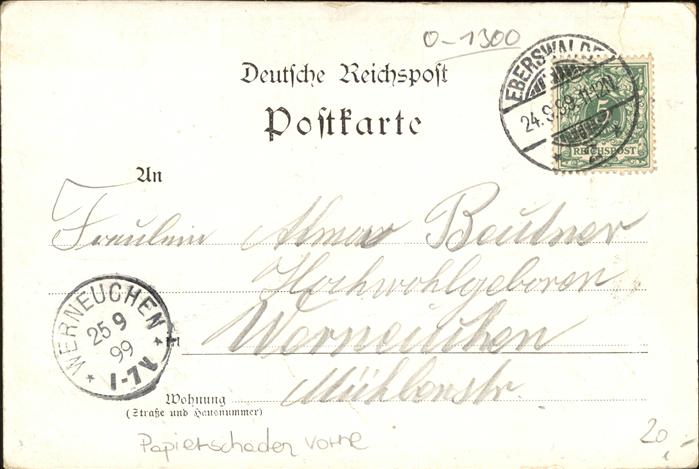 0-1300
Deutsche Reichspost
Postkarte
EBERSWALDE
24.9.99. 11-12V
5
REICHSPOST
An
Fräulein Alma Beutner
Hochwohlgeboren
Werneuchen
Mühlenstr.
WERNEUCHEN
25 9
99
1-7V
Wohnung
(Straße und Hausnummer)
Papierschaden vorne
20,-